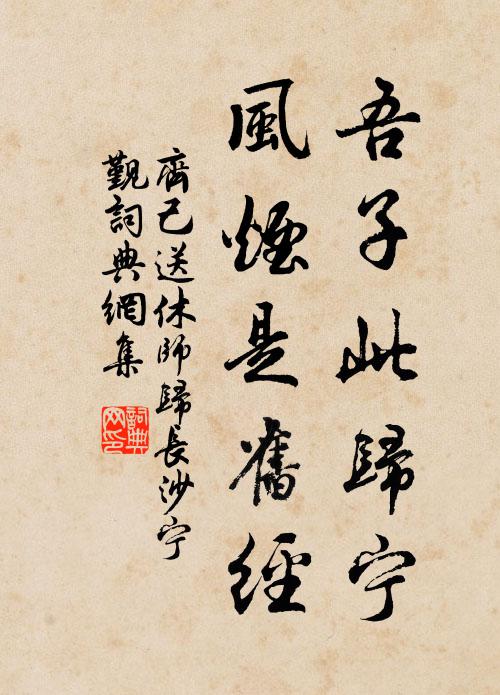 吾子此歸宁
風煙是舊經
齊己送休師歸長沙宁
觀詞典網集
詞典
网印